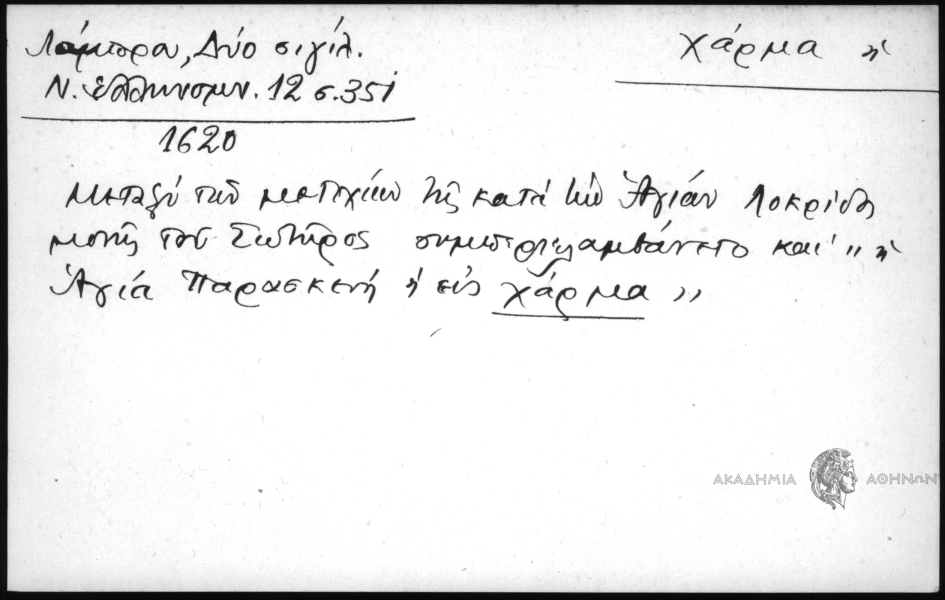 Λάμπρου, Δύο σιγίλ.
Ν. Ἑλληνομν. 12 σ. 351
χάρμα ἡ
1620
Μεταξύ τῶν μετοχίων τῆς κατά τήν Ἁγιάν Λοκρίδος
μονῆς τοῦ Σωτῆρος συμπεριελαμβάνετο καί " ἡ
Ἁγία Παρασκευή ἡ εἰς χάρμα "
ΑΚΑΔΗΜΙΑ ΑΘΗΝΩΝ